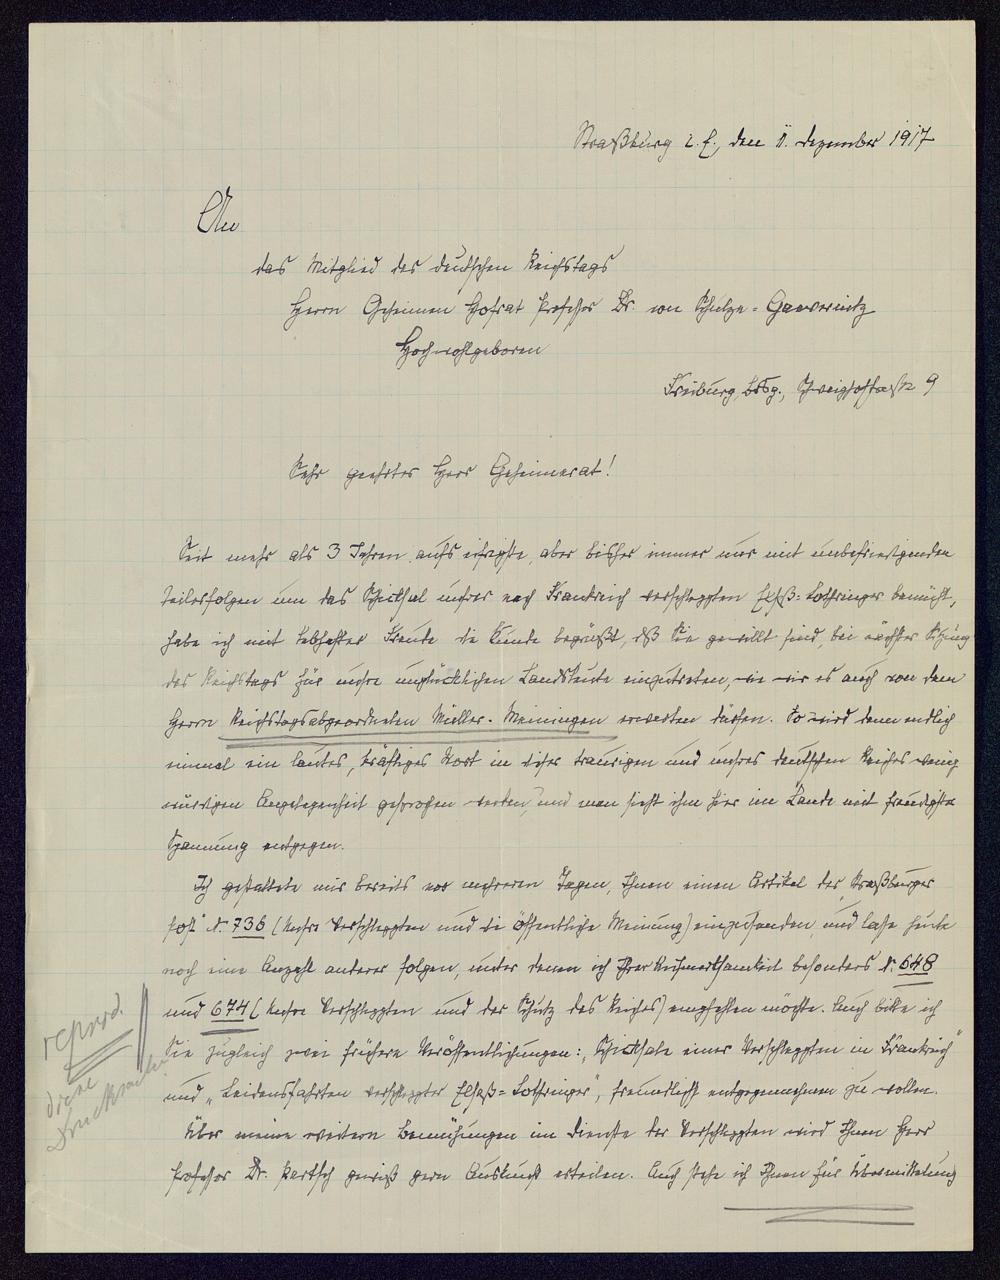 Straßburg i. E., den 11. Dezember 1917
An
das Mitglied des deutschen Reichstags
Herrn Geheimen Hofrat Professor Dr. von Schulze-Gaevernitz
Hochwohlgeboren
Freiburg, Brsg., 9
Sehr geehrter Herr Geheimerat!
Seit mehr als 3 Jahren aufs eifrigste, aber bisher immer nur mit unbefriedigenden
Teilerfolgen um das Schicksal unsrer nach Frankreich verschleppten Elsaß-Lothringer bemüht,
habe ich mit lebhafter Freude die Kunde begrüßt, daß Sie gewillt sind, bei nächster Sitzung
des Reichstags für unsre unglücklichen Landsleute einzutreten, wie wir es auch von dem
Herrn Reichstagsabgeordneten Müller-Meiningen erwarten dürfen. So wird denn endlich
einmal ein lautes, kräftiges Wort in dieser traurigen und unsres deutschen Reiches wenig
würdigen Angelegenheit gesprochen werden, und man sieht ihm hier im Lande mit freudigster
Spannung entgegen.
Ich gestattete mir bereits vor mehreren Tagen, Ihnen einen Artikel der „Straßburger
Post" N. 736 (Unsre Verschleppten und die öffentliche Meinung) einzusenden, und lasse heute
noch eine Anzahl anderer folgen, unter denen ich Ihrer Aufmerksamkeit besonders N. 648
und 674 (Unsre Verschleppten und der Schutz des Reiches) empfehlen möchte. Auch bitte ich
Sie zugleich zwei frühere Veröffentlichungen: „Schicksale eines Verschleppten in Frankreich"
und „Leidensfahrten verschleppter Elsaß-Lothringer", freundlichst entgegennehmen zu wollen.
Über meine weitern Bemühungen im Dienste der Verschleppten wird Ihnen Herr
Professor Dr. Partsch gewiß gern Auskunft erteilen. Auch stehe ich Ihnen für Übermittelung
diese
Drucksachen